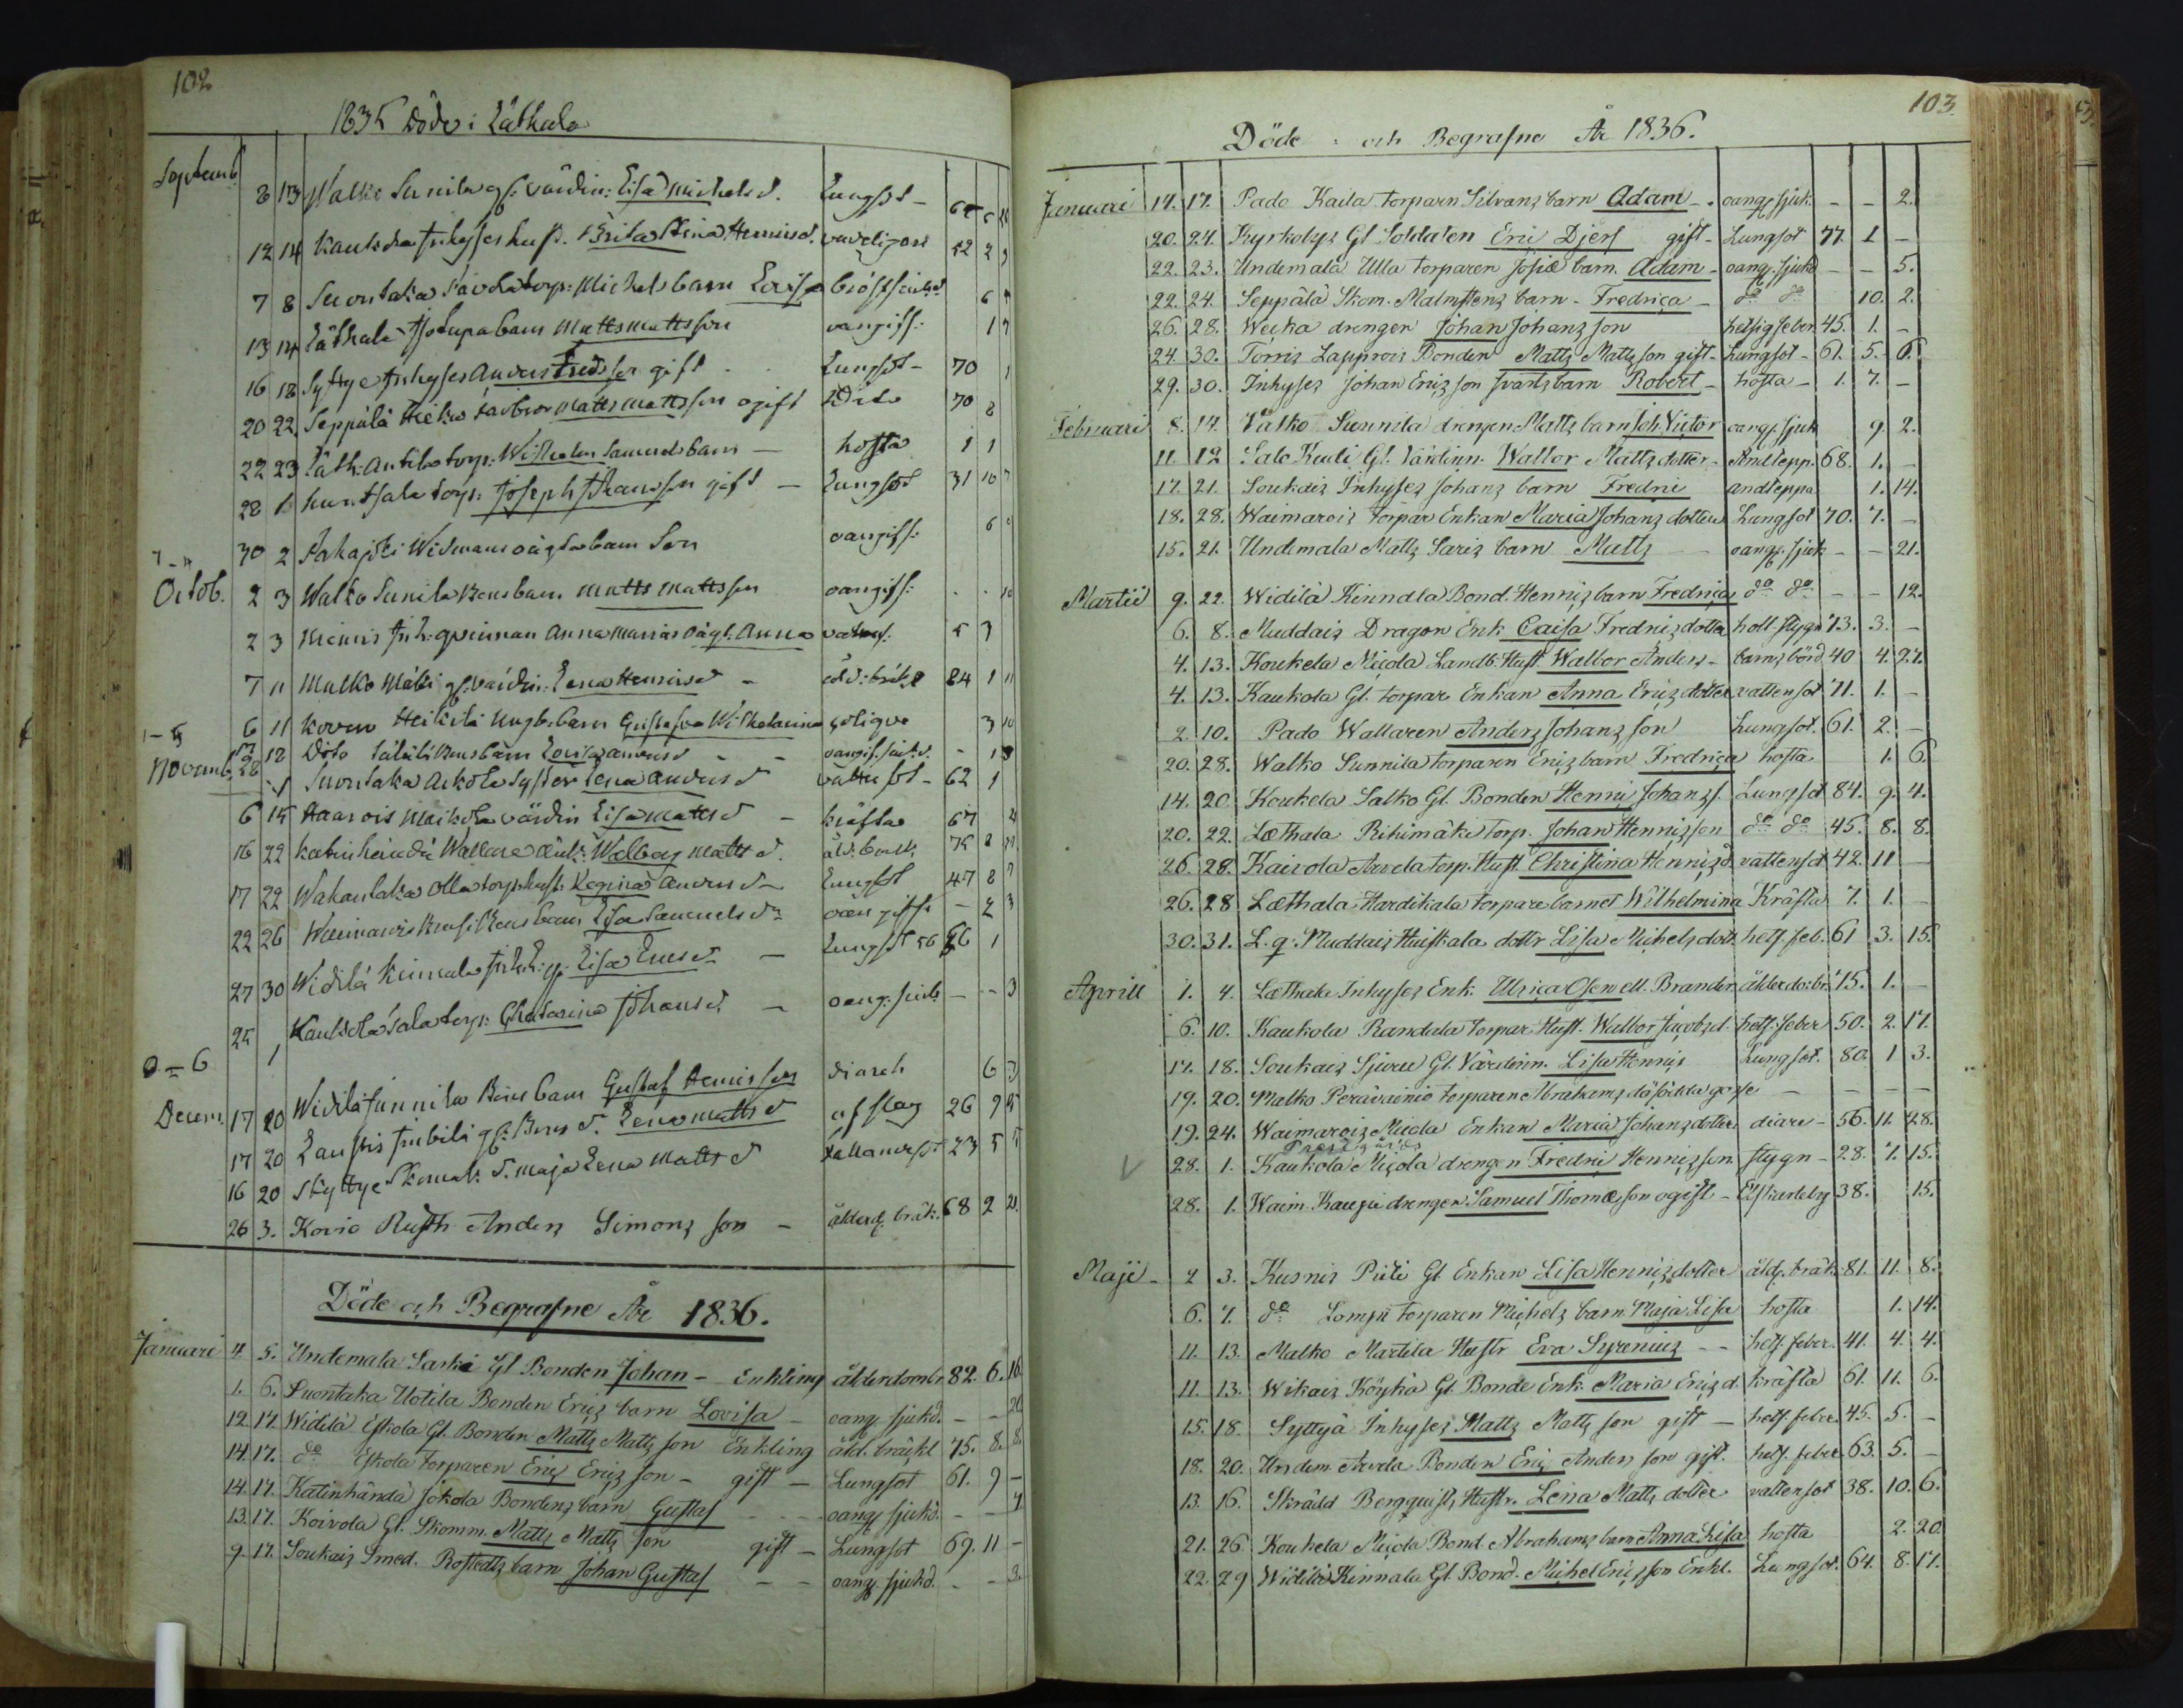 102
1835 Döde i Läthala
Septemb. 8 13 Walko Sunila gl: värdin: Lisa Michelsd. Lungsot -
12 14 Kaukola Inhyses hust. Brita Stina Henricsd. 52 2
7 8 Suontaka torp: Michels barn Lovisa bröstsjukd. 6
13 14 Läthala barn Matts Mattsson oangifs: 1
16 18 Syttye Inhyses Anders Fredsson gift Lungsot - 70 1
20 22 Seppälä Heiko Matts Mattsson ogift Dito 70 8
22 23 Läth: Antila torp: Wilhelm Samuels barn - hosta 1 1
28 1 torp: Joseph Johansson gift - Lungsot 31 10 7
30 2 Widmans barn Son oangifs: 6
Octob. 2 3 Walko Sunila barn Matts Mattsson oangifs: 10
2 3 Inh: qvinnan Anna Marias oägt. Anna 5 3
7 11 Malko Mäki gl: värdin: Lena Henricsd - åld: bräckl 84 1 11
6 11 Heikilä barn Gustava Wilhelmina colique 3 10
12 Dito barn Lovisa Andersd - 13
Novemb. Suontaka Arkola Syster Lena Andersd vattusot - 62 1
6 15 Haarois Maikola värdin Lisa Mattsd - kräfta 67 4
16 22 Katinhändä Wallare änk: Walborg Mattsd. åld: 75 8
17 22 Wahantaka Olla torp: hust: Regina Andersd - Lungsot 47 8 7
22 26 Waimarois barn Lisa Samuelsdr oangifs: - 2 3
27 30 Widilä Kinnala Lisa Ericsd - Lungsot 56 66 1
25 1 Kaukola torp: Chatarina Johansd. - oang. sjuk - - 3
0 - 6
Decem. 17 20 Widilä Sunnila barn Gustaf Henricsson diareh 6 3
17 20 Laurois gl: d. Lena Mattsd af slag 26 9
16 20 Skyttye Skomak: d. Maja Lena Mattsd 23 5 5
26 3. Kovio Rusth. Anders Simons son - ålderd. bräck. 68 2 21.
Döde och Begrafne År 1836.
Januari 4. 5. Undemala Sarki Gl Bonden Johan - Enkling ålderdomb. 82. 6. 16.
1. 6. Suontaka Uotila Bonden Erics barn Lovisa - oang. sjukd. - - 20
12. 17. Widilä Eskola Gl. Bonden Matts Matts son Enkling åld. bräckl 75. 8. 8.
14. 17. do Eskola Torparen Eric Erics son - gift - Lungsot 61. 9 -
14. 17. Katinhändä Jokola Bondens barn Gustaf - - - oang. sjukd. - - 7.
13. 17. Koivola Gl. Skomm. Matts Matts son gift - Lungsot 69. 11 -
9. 17. Soukais Smed. barn Johan Gustaf - - oang. sjukd. - - 3.
103.
Döde och Begrafne År 1836.
Januari 14. 17. Pado Kaila torparn Silvans barn Adam - oang. sjuk. - - 2.
20. 24. Kyrkobys Gl Soldaten Eric Djerf gift - Lungsot 77. 1 -
22. 23. Undemala Ulla torparen Josiæ barn. Adam - oang. sjuk - - 5.
22. 24. Seppälä Skom. Malmstens barn - Fredrica - do do 10. 2.
26. 28. Wecka drengen Johan Johans son hetsig feber 45. 1. -
24. 30. Torris Lapprois Bonden Matts Matts son gift - Lungsot - 61. 5. 6.
29. 30. Inhyses Johan Erics son barn Robert - hosta - 1. 7. -
Februari 8. 14. Walko Sunnila drengen Matts barn Joh. Victor oang. sjuk 9 2.
11. 12 Salo Gl. Värdinn. Walbor Matts dotter - Andtepp. 68. 1. -
17. 21. Soukais Inhyses Johans barn Fredric andteppa 1. 14.
18. 28. Waimarois torpar Enkan Maria Johans dotter Lungsot 70. 7. -
15. 21. Undemala Matts Saris barn Matts - oang. sjuk - - 21.
Martii 9. 22. Widilä Kinnala Bond. Henrics barn Fredrica do do - - 12.
6. 8. Muddais Dragon Enk. Caisa Fredrics dotter håll. stygn 73. 3. -
4. 13. Koukela Micola Landb. Hust. Walbor Anders - barns börd 40 4. 27.
4. 13. Kaukola Gl. torpar Enkan Anna Erics dotter vattensot 71. 1. -
2. 10. Pado Wallaren Anders Johans son Lungsot. 61. 2. -
20. 28. Walko Sunnila torparen Erics barn Fredrica hosta 1. 6.
14. 20. Koukela Salko Gl. Bonden Henric Johans s. Lungsot 84. 9. 4.
20. 22. Læthala Rihimäki torp. Johan Henricsson do do 45. 8. 8.
26. 28. Kairola Arvela torp. Hust. Christina Henrics d. vattensot 42. 11 -
26. 28 Læthala Hardikala torpare barnet Wilhelmina Kräfta 7. 1. -
30. 31. L. q. Muddais Huiskala dottr Lisa Michels dott. hets. feb. 61 3. 15.
Aprill 1. 4. Læthala Inhyses Enk. Ulrica Osen ell. Brander ålderdo: br. 75. 1. -
6. 10. Kaukola Randala torpar Hust. Walbor Jacobs d. hets. feber 50. 2. 17.
17. 18. Soukais Sjuru Gl. Värdinn. Lisa Henrics Lungsot. 80. 1 3.
19. 20. Malko Peräväinio torparen Abrahams dödfödda gosse - - - -
19. 24. Waimarois Micola Enkan Maria Johans dotter diare - 56. 11. 28.
28. 1. Kaukola Micola drengen Fredric Henrics son. stygn - 28. 7. 15.
28. 1. Waim. drengen Samuel Thomæ son ogift - 38. 15.
Maji - 2 3. Kusnis Gl. Enkan Lisa Henrics dotter åld. bräk. 81. 11. 8.
6. 7. do torparen Michels barn Maja Lisa hosta 1. 14.
11. 13. Malko Martila Hustr Eva Syrenius - - hets. feber. 41. 4. 4.
11. 13. Wikais Köykä Gl. Bonde Enk. Maria Erics d. kräfta 61. 11. 6.
15. 18. Syttyä Inhyses Matts Matts son gift - hets. feber 45. 5. -
18. 20. Undem. Arvela Bonden Eric Anders son gift. hets. feber 63. 5. -
13. 16. Skrädd Bergquists Hustr. Lena Matts dotter vattensot 38. 10. 6.
21. 26. Koukela Micola Bond. Abrahams barn Anna Lisa hosta 2. 20.
22. 29 Widilä Kinnala Gl. Bond. Michel Ericsson Enkl. Lungsot. 64. 8. 17.